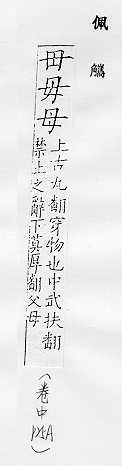 佩觿
毌毋母
上古丸翻穿物也中武扶翻
禁止之辭下莫厚翻父母
(卷中